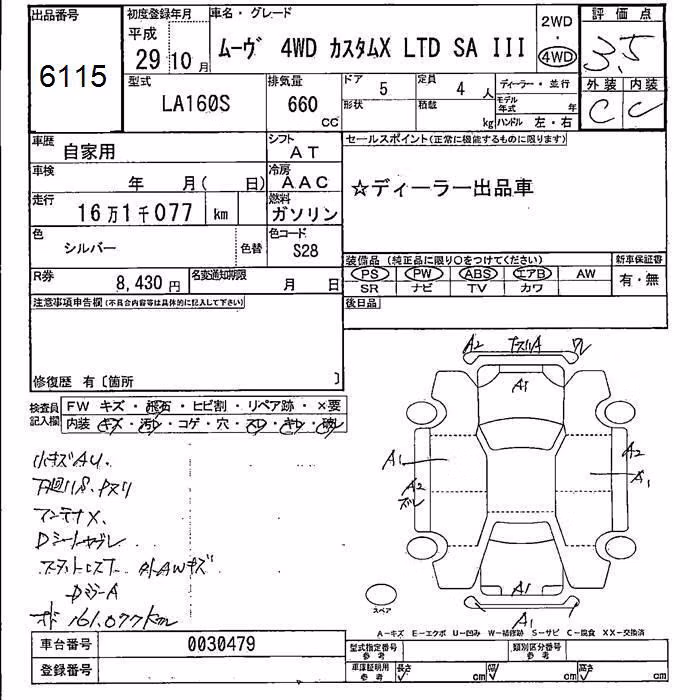 出品番号 初度登録年月 車名・グレード 2WD 評価点
6115 平成 29 10月 ムーヴ 4WD カスタムX LTD SA III 4WD 3.5
型式 排気量 ドア 5 定員 4人 ディーラー・並行 外装 内装
LA160S 660 cc 形状 積載 kg モデル年式 年 C C
ハンドル 左・右
車歴 自家用 シフト AT セールスポイント(正常に機能するものに限ります)
車検 年 月( 日) 冷房 AAC ☆ディーラー出品車
走行 16万1千077 km 燃料 ガソリン
色 シルバー 色替 色コード S28
装備品(純正品に限り○をつけてください) 新車保証書
R券 8,430円 名変通知期限 月 日 PS PW ABS エアB AW 有・無
SR ナビ TV カワ
注意事項申告欄(不具合内容等は具体的に記入して下さい) 後日品
修復歴 有〔箇所 〕
検査員記入欄 FW キズ・飛石・ヒビ割・リペア跡・×要
内装 キズ・汚レ・コゲ・穴・スレ・キレ・破レ
小キズAU.
下廻りS.
アンテナX.
Dシート
外AWキズ
DミラーA
161,077km
A2 ワレ
A1
A1 A2
A2 A1
A1
A1
スペア
A－キズ E－エクボ U－凹み W－補修跡 S－サビ C－腐食 XX－交換済
車台番号 0030479 型式指定番号 参考 類別区分番号 参考
登録番号 車庫証明用 参考 長さ cm 幅 cm 高さ cm